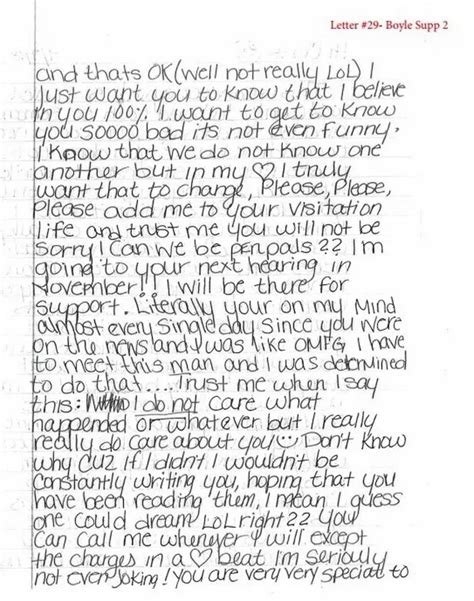 Letter #29- Boyle Supp 2
and thats OK (well not really LOL) I
Just want you to know that I believe
in you 100%. I want to get to know
you soooo bad its not even funny.
I know that we do not know one
another but in my ♡ I truly
want that to change, Please, Please,
Please add me to your visitation
life and trust me you will not be
sorry! Can we be penpals?? Im
going to your next hearing in
November!! I will be there for
support. Literally your on my Mind
almost every single day since you were
on the news and I was like OMFG I have
to meet this man and I was determined
to do that.... Trust me when I say
this: I do not care what
happended or whatever but I really
really do care about you☺ Don't know
why cuz if I didn't I wouldn't be
constantly writing you, hoping that you
have been reading them, I mean I guess
one could dream LOL right?? You
can call me whenever I will except
the charges in a ♡ beat Im seriouly
not even joking! You are very very special to